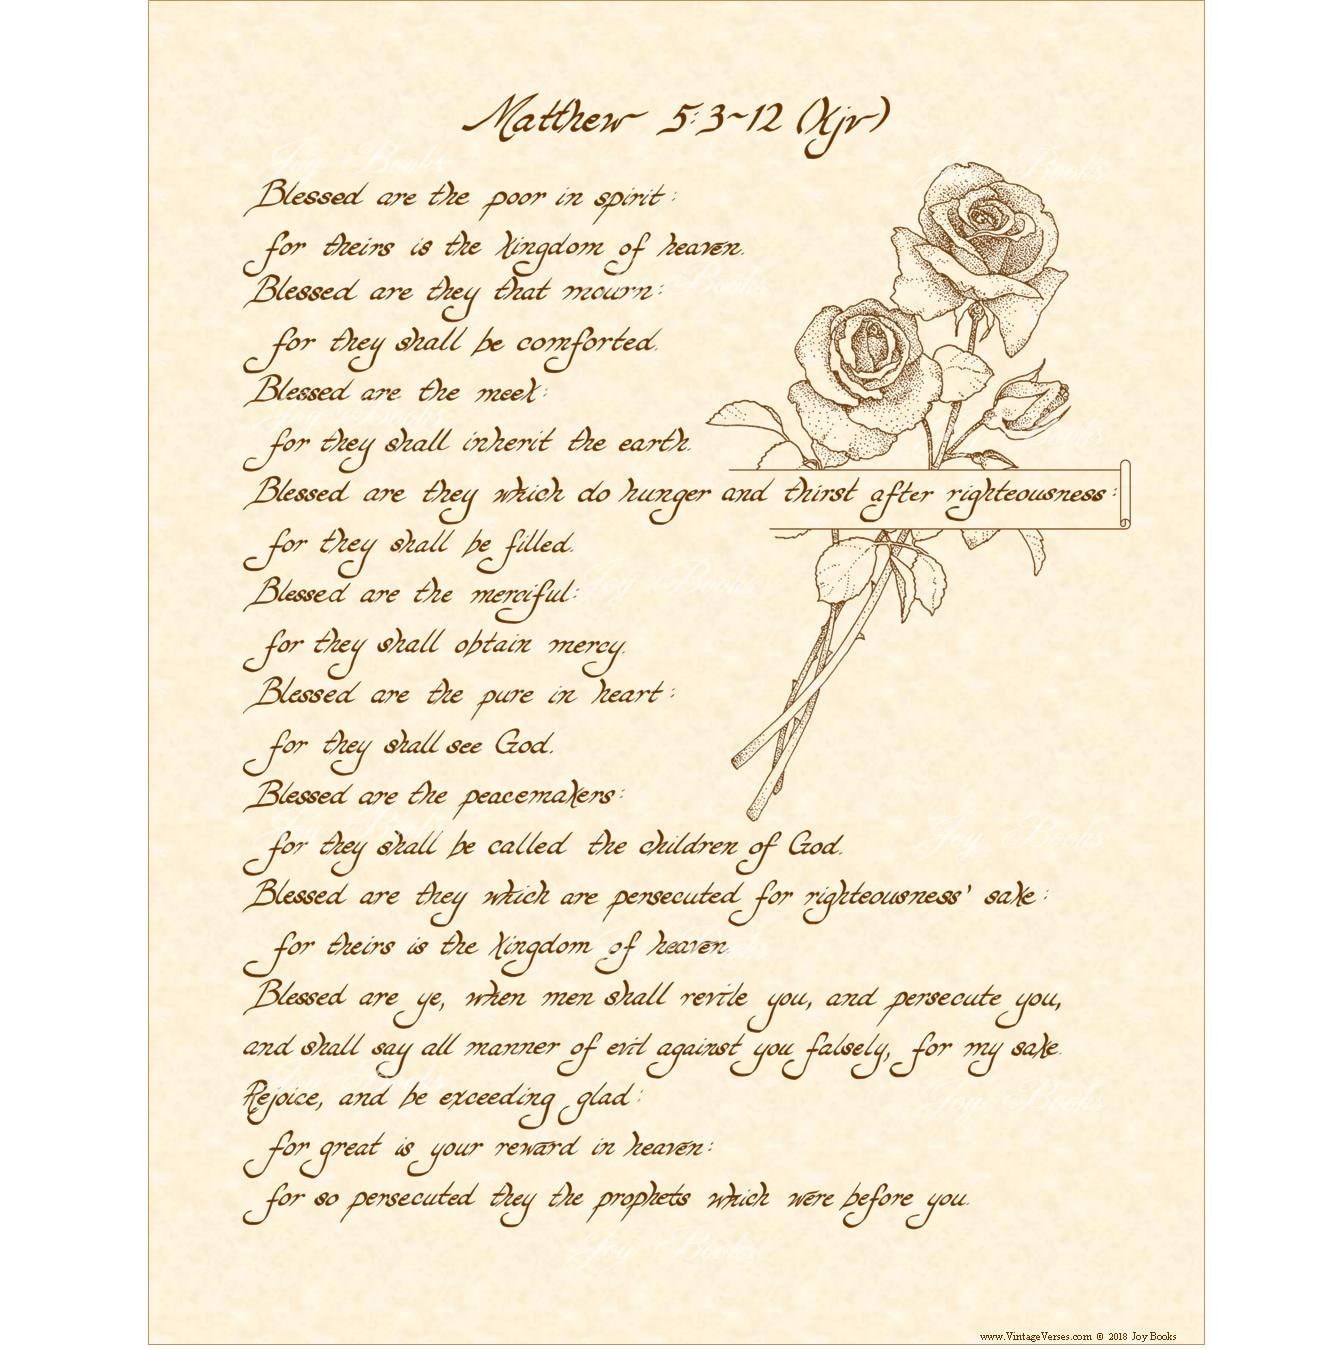 Matthew 5:3~12 (kjv)
Blessed are the poor in spirit:
for theirs is the kingdom of heaven.
Blessed are they that mourn:
for they shall be comforted.
Blessed are the meek:
for they shall inherit the earth.
Blessed are they which do hunger and thirst after righteousness:
for they shall be filled.
Blessed are the merciful:
for they shall obtain mercy.
Blessed are the pure in heart:
for they shall see God.
Blessed are the peacemakers:
for they shall be called the children of God.
Blessed are they which are persecuted for righteousness' sake:
for theirs is the kingdom of heaven.
Blessed are ye, when men shall revile you, and persecute you,
and shall say all manner of evil against you falsely, for my sake.
Rejoice, and be exceeding glad:
for great is your reward in heaven:
for so persecuted they the prophets which were before you.
Joy Books
www.VintageVerses.com © 2018 Joy Books